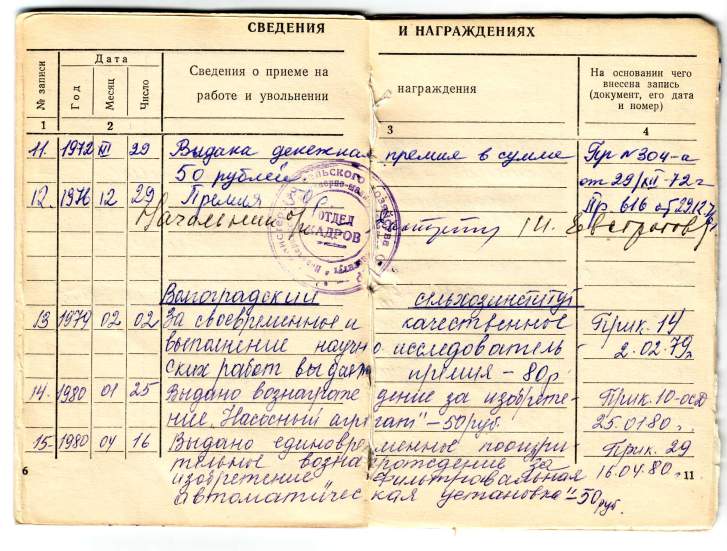 СВЕДЕНИЯ И НАГРАЖДЕНИЯХ
№ записи Дата Сведения о приеме на награждения На основании чего
Год Месяц Число работе и увольнении внесена запись
(документ, его дата
и номер)
1 2 3 4
11. 1972 III 29 Выдана денежная премия в сумме Пр N 304-а
50 рублей от 29/XII-72 г
12. 1976 12 29 Премия 50 р. Пр. 616 от 29.12.76
Начальник
ОТДЕЛ
КАДРОВ
Волгоградский сельхозинститут
13 1979 02 02 За своевременное и качественное Прик. 14
выполнение научно исследователь- 2.02.79г
ских работ выдана премия - 80р
14. 1980 01 25 Выдано вознагражде дение за изобрете- Прик. 10-осд
ние. Насосный агрегат" - 50 руб. 25.01.80 г.
15. 1980 04 16 Выдано единовременное поощри- Прик. 29
тельное вознаграждение за 16.04.80 г.
изобретение Фильтровальная
автоматическая установка" - 50 руб.
6 11